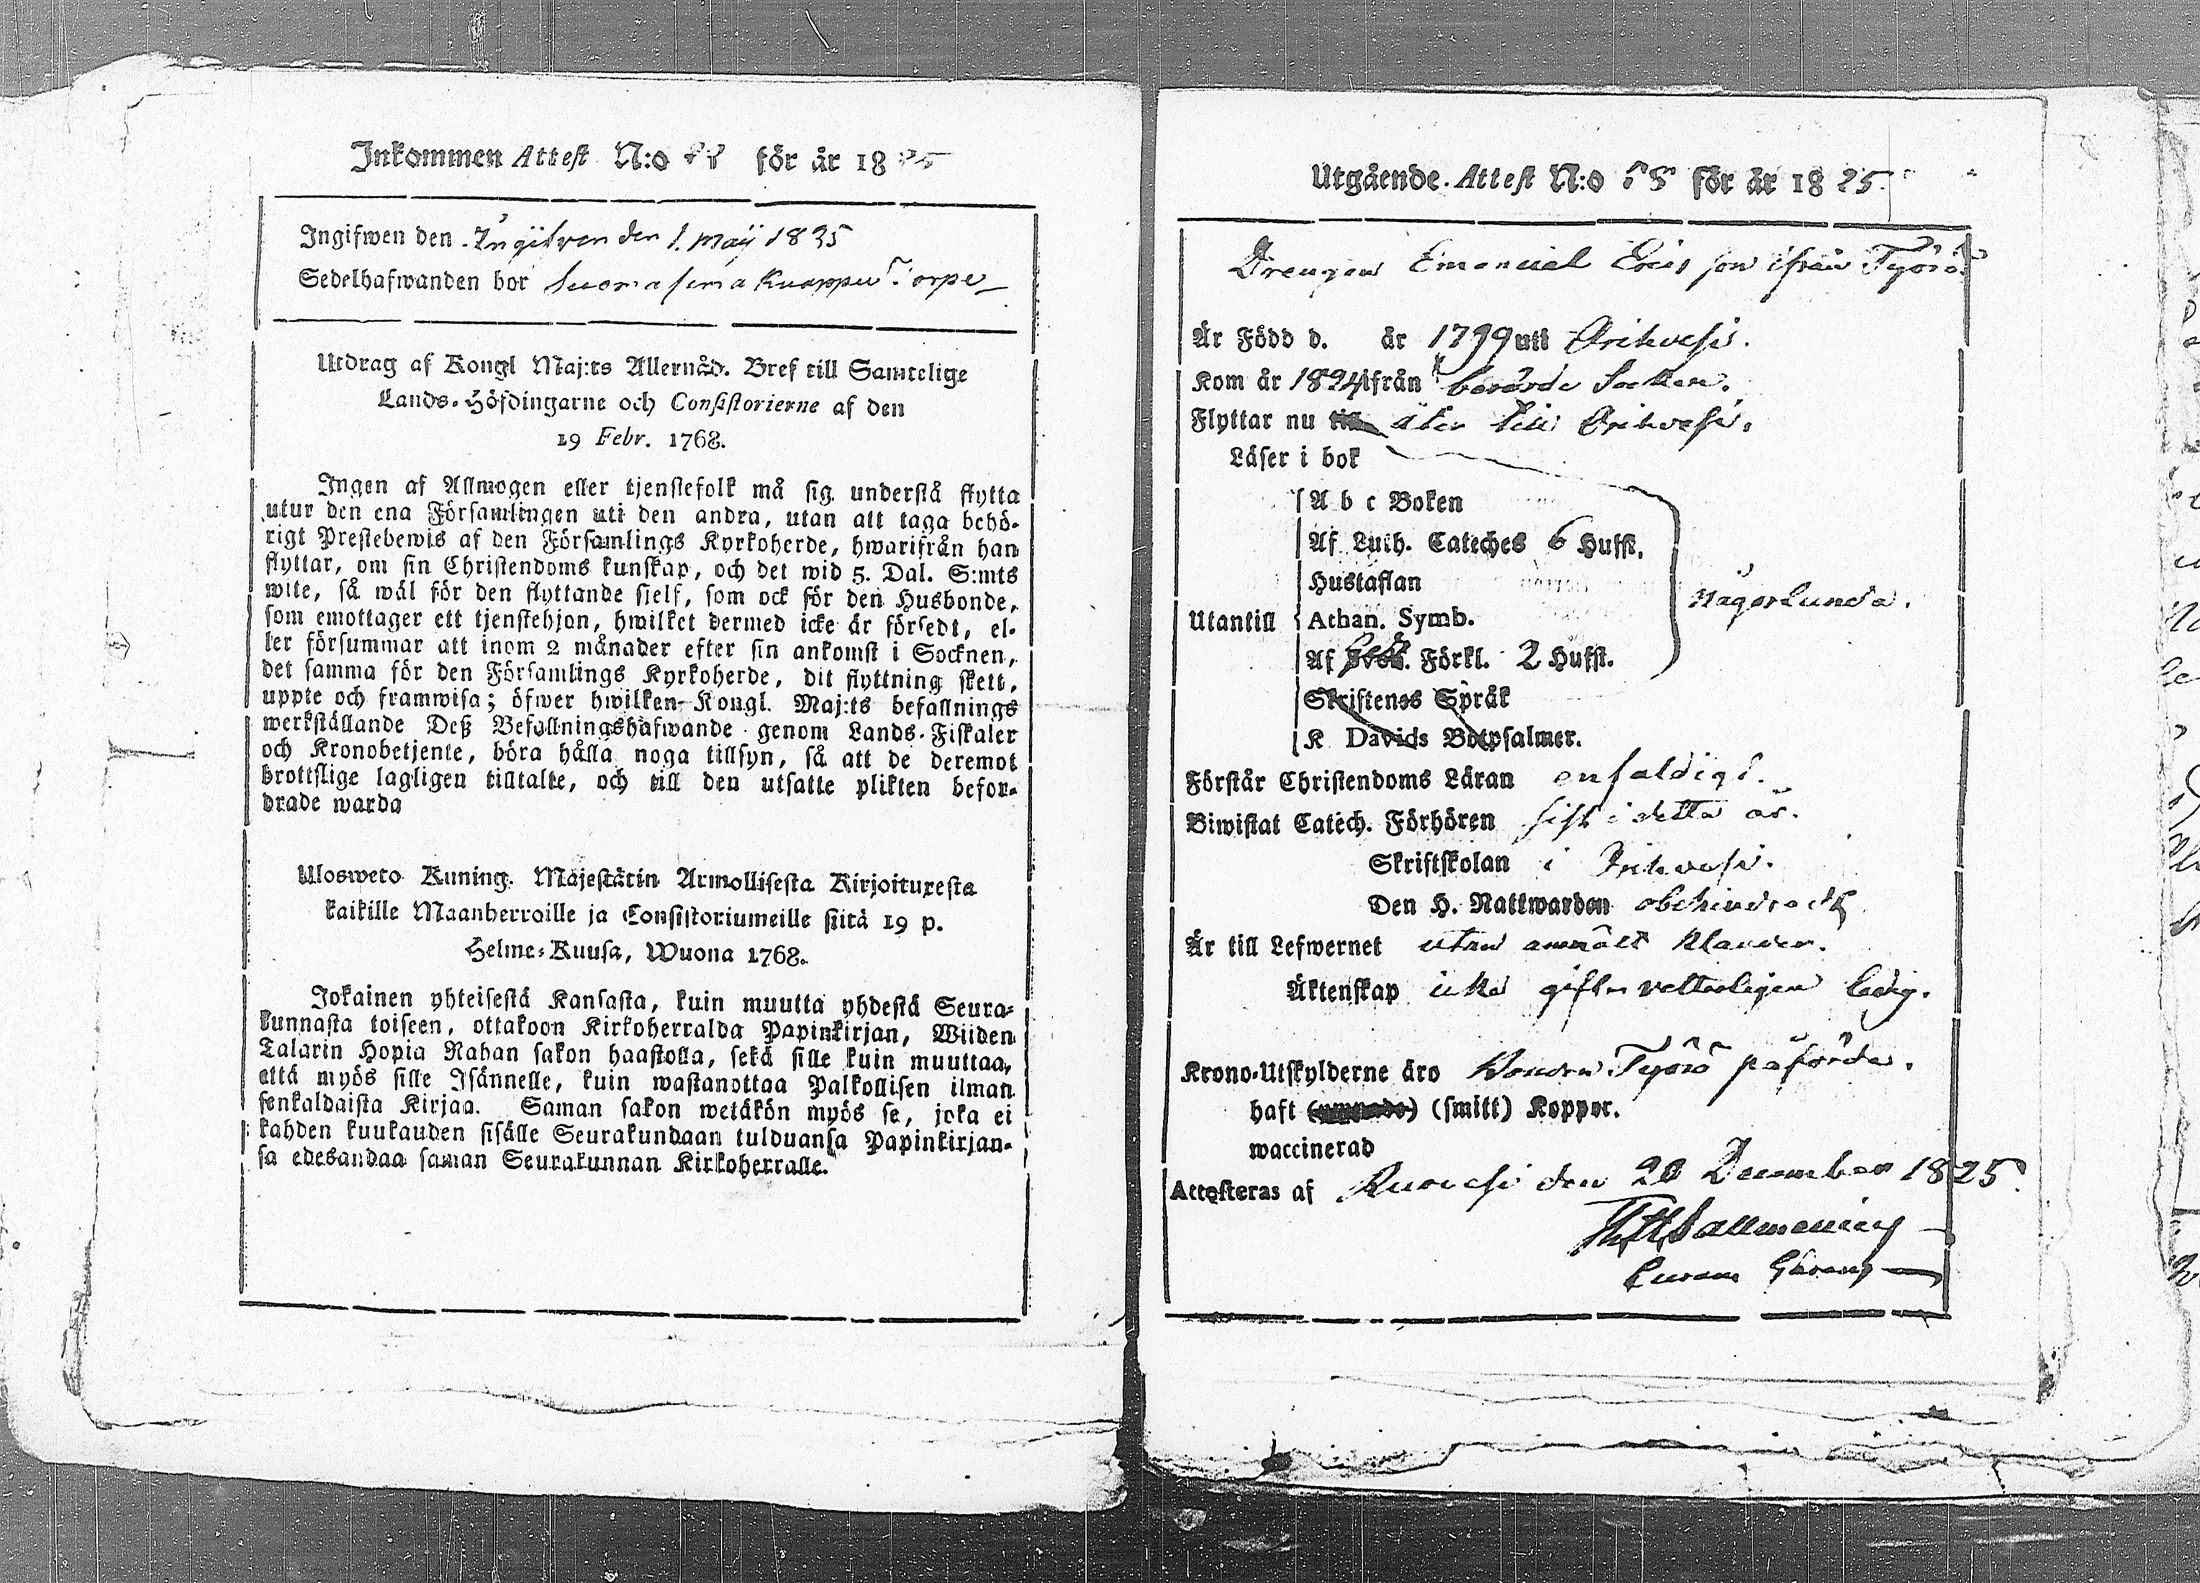 Inkommen Attest N:o för år 18 25
Ingifwen den Ingifven den 1. Maij 1825
Sedelhafwanden bor Suomasema Knappu Torpe
Utdrag af Kongl Maj:ts Allernåd. Bref till Samtelige
Lands-Höfdingarne och Consistorierne af den
19 Febr. 1768.
Ingen af Allmogen eller tjenstefolk må sig understå flytta
utur den ena Församlingen uti den andra, utan att taga behö-
rigt Prestebewis af den Församlings Kyrkoherde, hwarifrån han
flyttar, om sin Christendoms kunskap, och det wid 5. Dal. S:mts
wite, så wäl för den flyttande sjelf, som ock för den Husbonde,
som emottager ett tjenstehjon, hwilket dermed icke är försedt, el-
ler försummar att inom 2 månader efter sin ankomst i Socknen,
det samma för den Församlings Kyrkoherde, dit flyttning skett,
uppte och framwisa; öfwer hwilken Kongl. Maj:ts befallnings
werkställande Deß Befallningshafwande genom Lands-Fiskaler
och Kronobetjente, böra hålla noga tillsyn, så att de deremot
brottslige lagligen tilltalte, och till den utsatte plikten befor-
drade warda
Ulosweto Kuning. Majestätin Armollisesta Kirjoituxesta
kaikille Maanherroille ja Consistoriumeille siitä 19 p.
Helme-Kuusa, Wuona 1768.
Jokainen yhteisestä Kansasta, kuin muutta yhdestä Seura-
kunnasta toiseen, ottakoon Kirkoherralda Papinkirjan, Wiiden
Talarin Hopia Rahan sakon haastolla, sekä sille kuin muuttaa,
että myös sille Isännelle, kuin wastanottaa Palkollisen ilman
senkaldaista Kirjaa. Saman sakon wetäkön myös se, joka ei
kahden kuukauden sisälle Seurakundaan tulduansa Papinkirjan-
sa edesandaa saman Seurakunnan Kirkoherralle.
Utgående Attest N:o 58 för år 18 25.
Drengen Emanuel Ericsson ifrån Työrö
Är Född d. år 1799 uti Orihvesi.
Kom år 1824 ifrån berörde Socken.
Flyttar nu till åter till Orihvesi.
Läser i bok
A b c Boken
Af Luth. Cateches 6 Hufst.
Hustaflan
Någorlunda.
Utantill Athan. Symb.
Af Förkl. 2 Hufst.
Skriftenes Språk
K Davids Botpsalmer.
Förstår Christendoms Läran enfaldigt.
Biwistat Catech. Förhören sist i detta år.
Skriftskolan i Orihvesi.
Den H. Nattwarden obehindradt
Är till Lefwernet utan anmält klander.
Äktenskap icke gift vetterligen ledig.
Krono-Utskylderne äro Bonden Työrö påförda.
haft (smitt) Koppor.
waccinerad
Attesteras af Ruovesi den 20 December 1825.